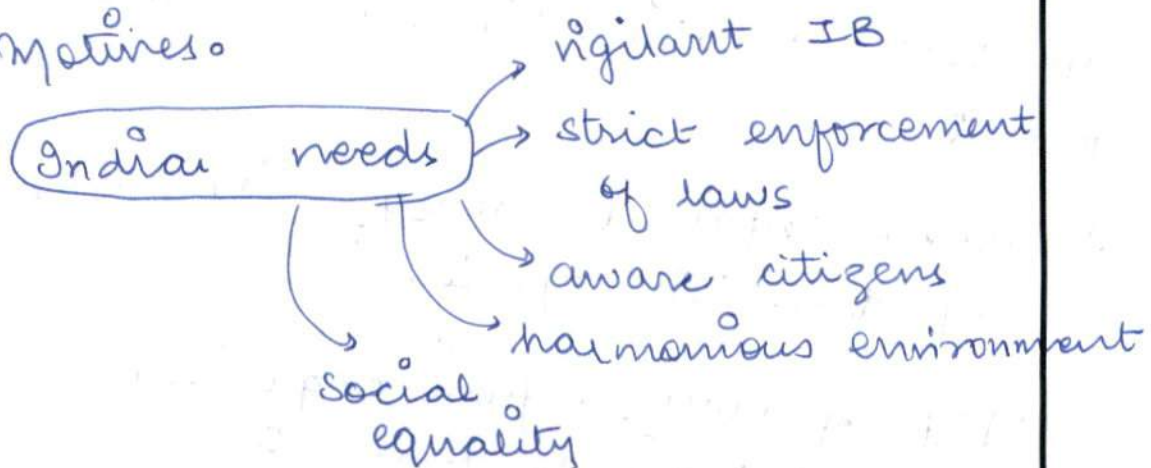 motives.
vigilant IB
India needs
strict enforcement
of laws
aware citizens
harmonious environment
social
equality